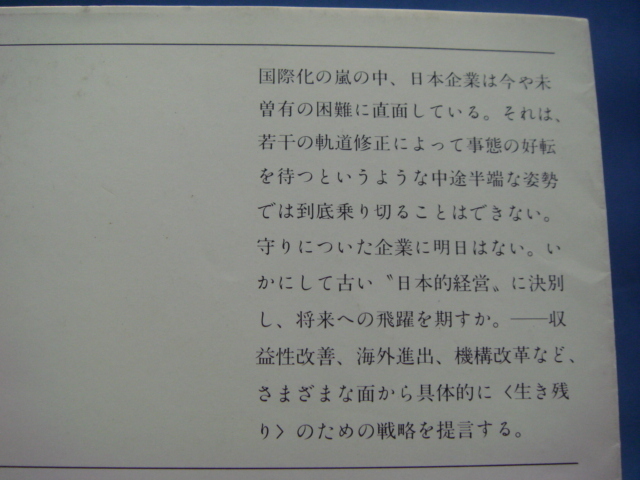 国際化の嵐の中、日本企業は今や未
曽有の困難に直面している。それは、
若干の軌道修正によって事態の好転
を待つというような中途半端な姿勢
では到底乗り切ることはできない。
守りについた企業に明日はない。い
かにして古い〝日本的経営〟に決別
し、将来への飛躍を期すか。――収
益性改善、海外進出、機構改革など、
さまざまな面から具体的に〈生き残
り〉のための戦略を提言する。